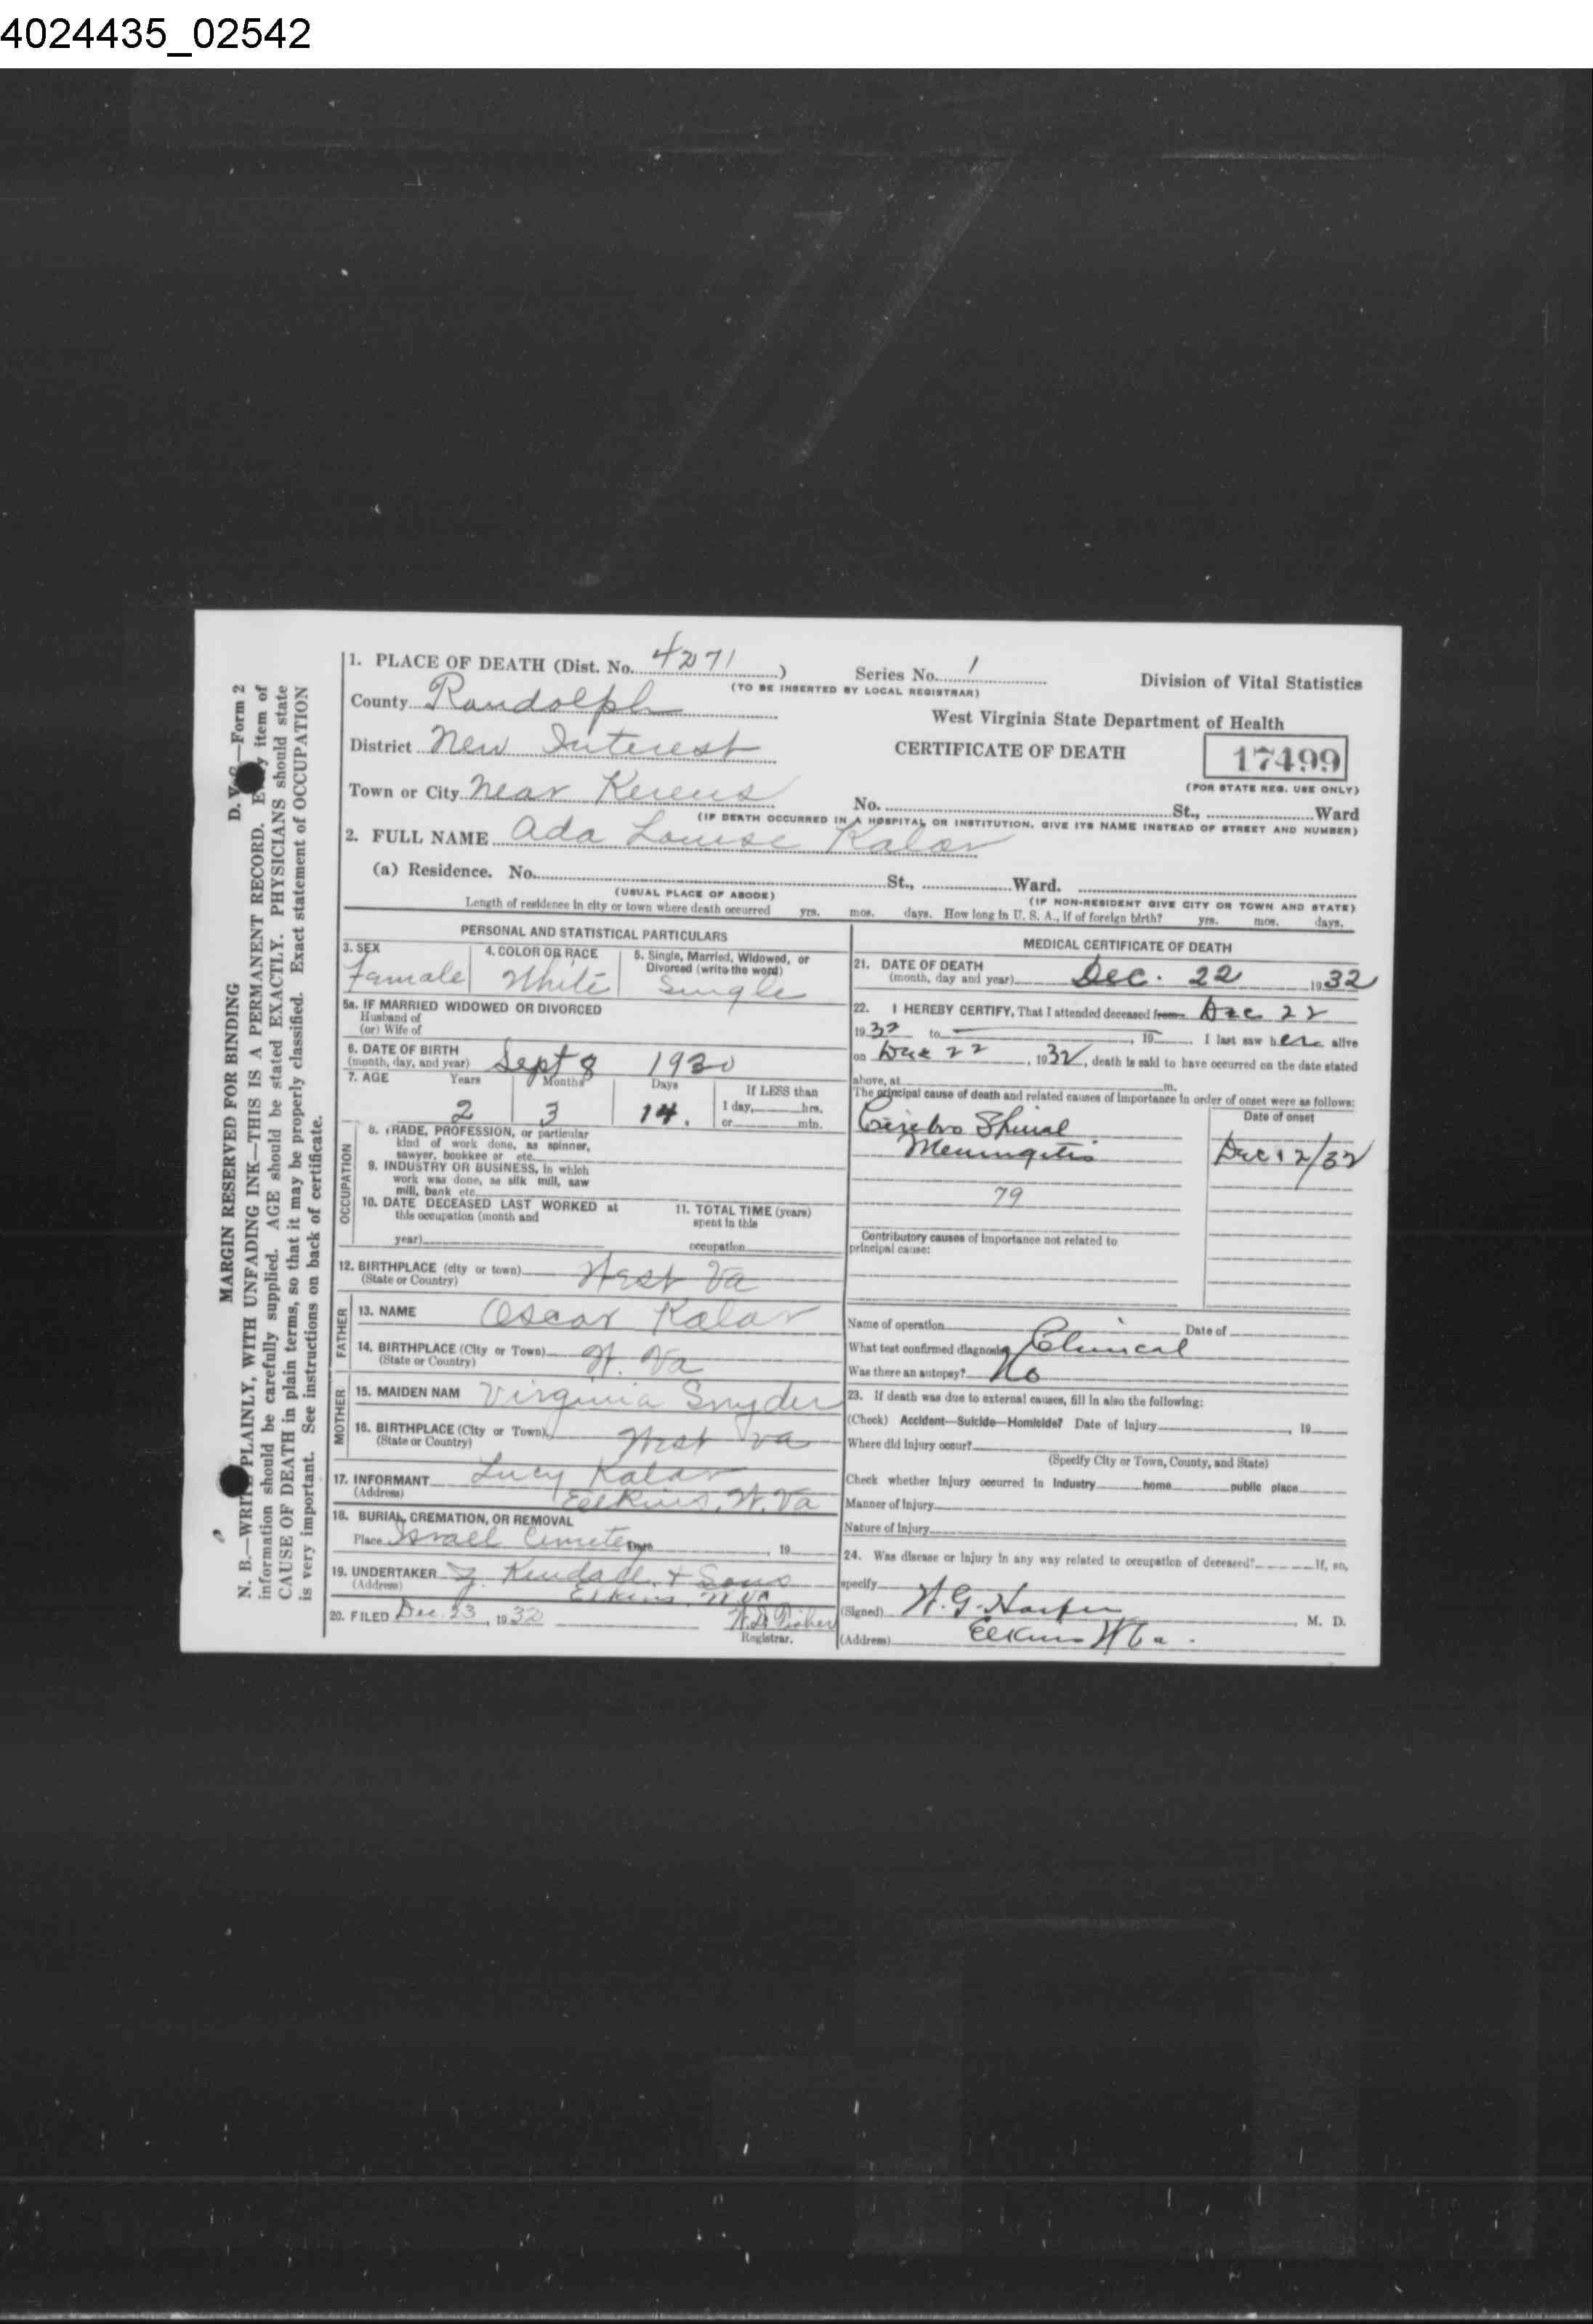 4024435_02542
MARGIN RESERVED FOR BINDING D. V. S.—Form 2
N. B.—WRITE PLAINLY, WITH UNFADING INK—THIS IS A PERMANENT RECORD. Every item of
information should be carefully supplied. AGE should be stated EXACTLY. PHYSICIANS should state
CAUSE OF DEATH in plain terms, so that it may be properly classified. Exact statement of OCCUPATION
is very important. See instructions on back of certificate.
1. PLACE OF DEATH (Dist. No. 4271) Series No. 1
(TO BE INSERTED BY LOCAL REGISTRAR)
Division of Vital Statistics
County Randolph
West Virginia State Department of Health
District New Interest
CERTIFICATE OF DEATH 17499
(FOR STATE REG. USE ONLY)
Town or City Near Kerens No. St., Ward
(IF DEATH OCCURRED IN A HOSPITAL OR INSTITUTION, GIVE ITS NAME INSTEAD OF STREET AND NUMBER)
2. FULL NAME Ada Louise Kalar
(a) Residence. No. St., Ward.
(USUAL PLACE OF ABODE) (IF NON-RESIDENT GIVE CITY OR TOWN AND STATE)
Length of residence in city or town where death occurred yrs. mos. days. How long in U. S. A., if of foreign birth? yrs. mos. days.
PERSONAL AND STATISTICAL PARTICULARS
3. SEX 4. COLOR OR RACE 5. Single, Married, Widowed, or
Divorced (write the word)
Female White Single
5a. IF MARRIED WIDOWED OR DIVORCED
Husband of
(or) Wife of
6. DATE OF BIRTH
(month, day, and year) Sept 8 1930
7. AGE Years Months Days If LESS than
2 3 14. 1 day, hrs.
or min.
OCCUPATION
8. TRADE, PROFESSION, or particular
kind of work done, as spinner,
sawyer, bookkee er etc.
9. INDUSTRY OR BUSINESS, in which
work was done, as silk mill, saw
mill, bank etc.
10. DATE DECEASED LAST WORKED at
this occupation (month and
year)
11. TOTAL TIME (years)
spent in this
occupation
12. BIRTHPLACE (city or town) West Va
(State or Country)
FATHER
13. NAME Oscar Kalar
14. BIRTHPLACE (City or Town) W. Va
(State or Country)
MOTHER
15. MAIDEN NAM Virginia Snyder
16. BIRTHPLACE (City or Town) West Va
(State or Country)
17. INFORMANT Lucy Kalar
(Address) Elkins, W. Va
18. BURIAL, CREMATION, OR REMOVAL
Place Israel Cemetery Date , 19
19. UNDERTAKER J. Kendall & Sons
(Address) Elkins, W. Va
20. FILED Dec 23, 1932 W.D. Fisher
Registrar.
MEDICAL CERTIFICATE OF DEATH
21. DATE OF DEATH
(month, day and year) Dec. 22 1932
22. I HEREBY CERTIFY, That I attended deceased from Dec 22
1932 to , 19 . I last saw her alive
on Dec 22, 1932, death is said to have occurred on the date stated
above, at m.
The principal cause of death and related causes of importance in order of onset were as follows:
Date of onset
Cerebro Spinal
Meningitis Dec 12/32
79
Contributory causes of importance not related to
principal cause:
Name of operation Date of
What test confirmed diagnosis Clinical
Was there an autopsy? No
23. If death was due to external causes, fill in also the following:
(Check) Accident—Suicide—Homicide? Date of Injury , 19
Where did injury occur?
(Specify City or Town, County, and State)
Check whether injury occurred in Industry home public place
Manner of Injury
Nature of Injury
24. Was disease or injury in any way related to occupation of deceased? If, so,
specify
(Signed) W. G. Harper , M. D.
(Address) Elkins W Va.